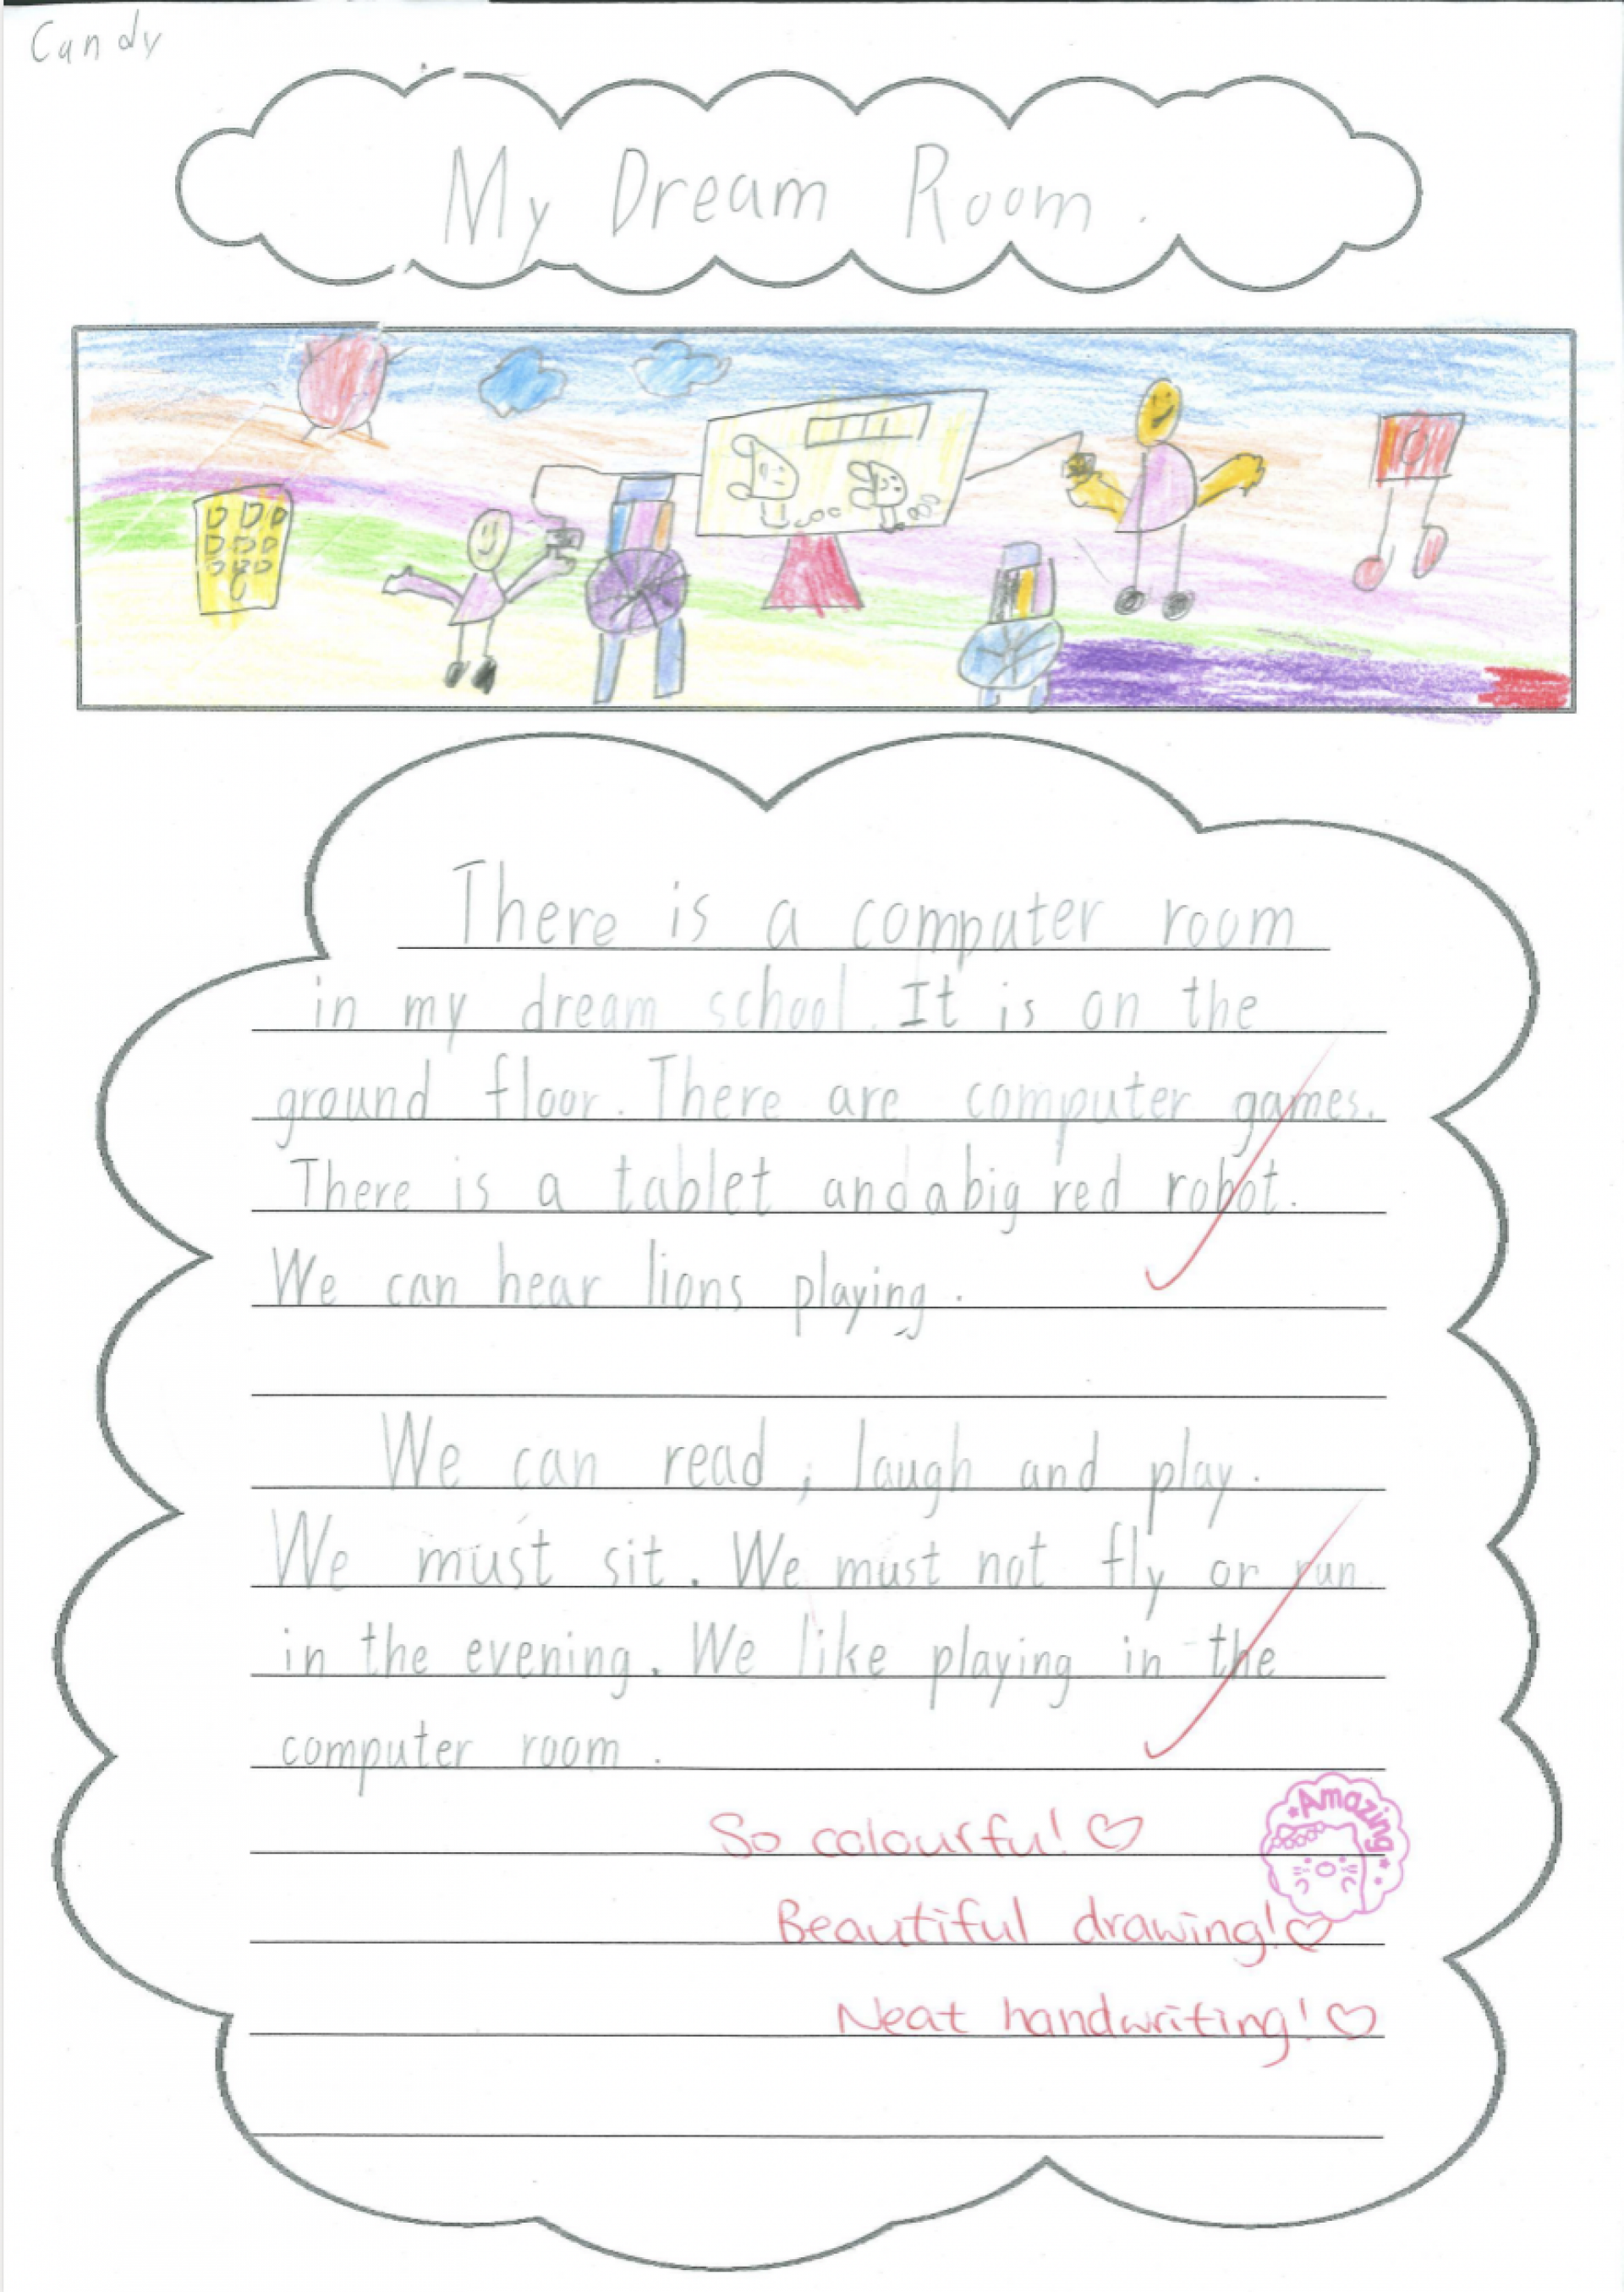 Candy
My Dream Room.
There is a computer room
in my dream school. It is on the
ground floor. There are computer games.
There is a tablet and a big red robot.
We can hear lions playing.
We can read, laugh and play.
We must sit. We must not fly or run
in the evening. We like playing in the
computer room.
So colourful! ♡
Amazing
Beautiful drawing! ♡
Neat handwriting! ♡